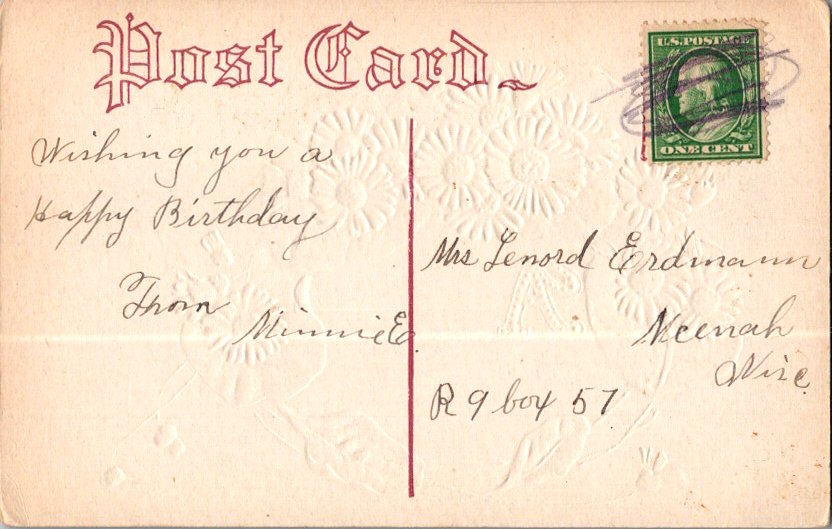 Post Card
U.S. POSTAGE
ONE CENT
Wishing you a
Happy Birthday
From
Minnie E
Mrs Lenord Erdmann
Neenah
Wise
R 9 box 57